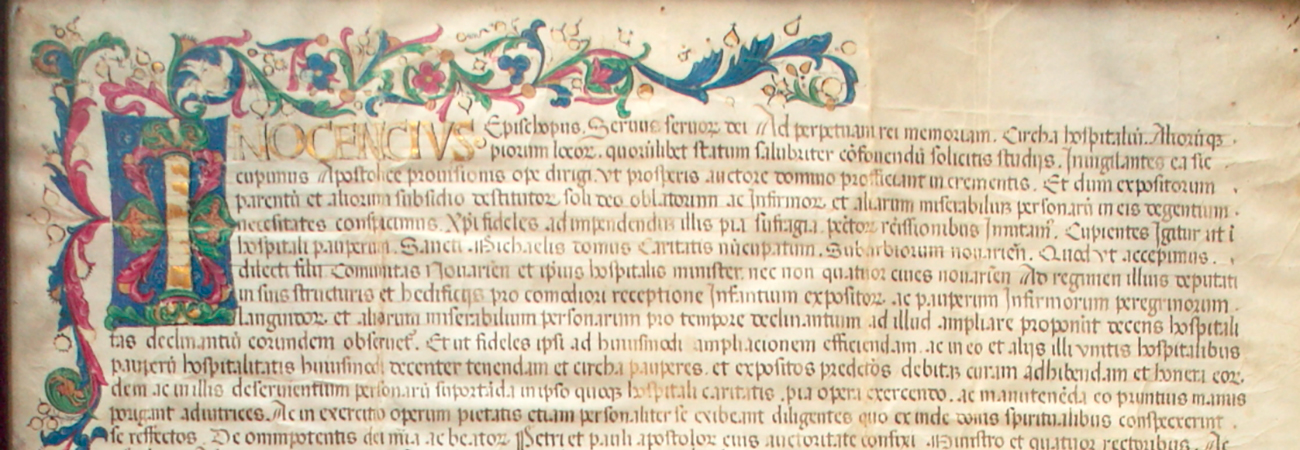 INOCENCIVS Epischopus. Seruus seruoꝝ dei Ad perpetuam rei memoriam. Circha hospitaliū. Aliorūqꝫ.
piorum locoꝝ. quorūlibet statum salubriter cōfouendū solicitis studijs. Inuigilantes ea sic
cupimus Apostolice prouisionis ope dirigi. vt prosperis auctore domino proficiant incrementis. Et dum expositorum
parentū et aliorum subsidio destitutoꝝ soli deo oblatorum ac Infirmoꝝ et aliarum miserabiliuꝫ personarū in eis degentium.
necesitates conspicimus. Xp̄i fideles ad impendendum illis pia sufragia. pecτoꝝ rēissionibus Inuitam᾽. Cupientes Igitur ut
hospitali pauperum. Sancti Michaelis domus Caritatis nūcupatum. Subarbiorum nouarien̄. Quod vt accepimus.
dilecti filii Comunitas Nouarien̄ et ip̄ius hospitalis minister. nec non quatuor ciues nouarien̄ Ad regimen illius deputati
in suis structuris et hedificijs pro comodiori receptione Infantium expositoꝝ. ac pauperum Infirmorum peregrinorum.
Languidoꝝ. et aliarum miserabilium personarum pro tempore declinantium ad illud ampliare proponūt decens hospitali
tas declinantiū eorundem obseruet᾽. Et ut fideles ipsi ad huiusmodi ampliacionem efficiendam. ac in eo et alijs illi vnitis hospitalibus
pauperū hospitalitatis huiusmodi decenter tenendam et circha pauperes. et expositos predctōs debitā curam adhibendam et honera eoꝝ.
dem ac in illis deseruientium personarū suportāda in ipso quoqꝫ hospitali caritatis. pia opera exercendo. ac manutenēda eo promtius manus
porigant adiutrices. Ac in exercitio operum pietatis etiam personaliter se exibeant diligentes quo ex inde donis spiritualibus conspexerint.
se reffectos. De omnipotentis dei mīa ac beatoꝝ Petri et pauli apostoloꝝ eius auctoritate confixi Ministro et quatuor rectoribus. Ac